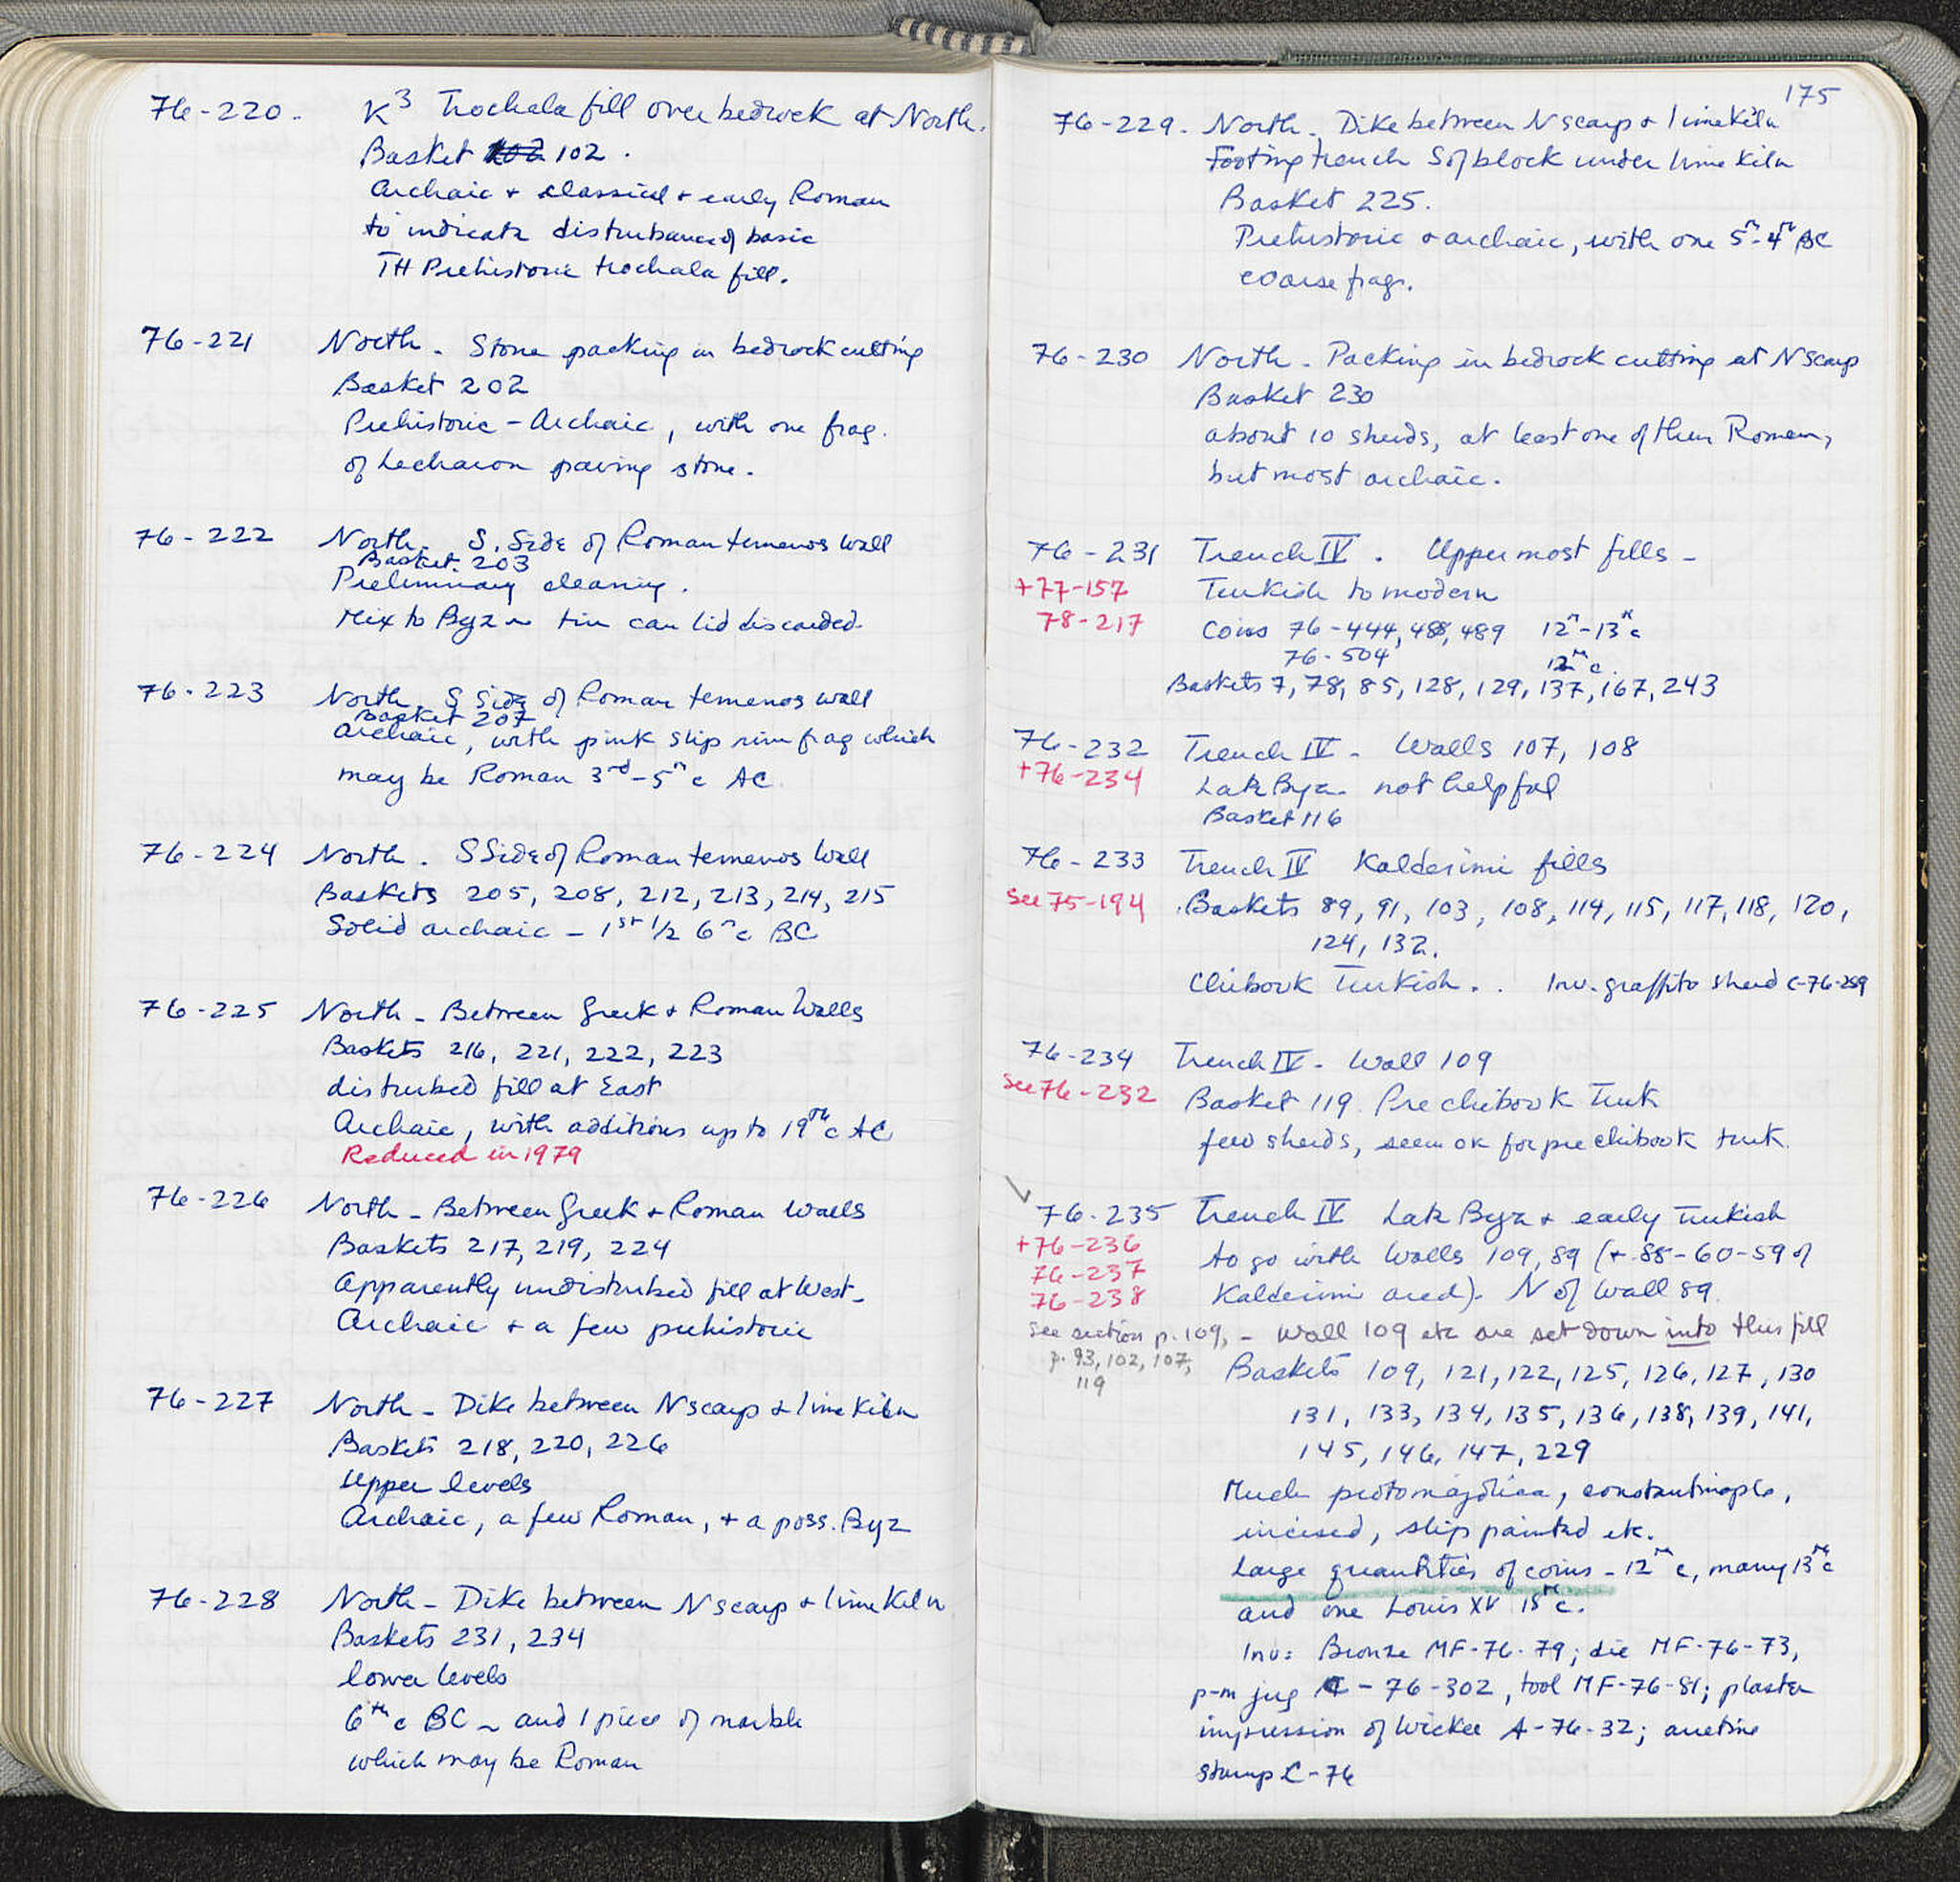 76-220. K³ Trochala fill over bedrock at North.
Basket 102.
Archaic + classical + early Roman
to indicate disturbance of basic
TH Prehistoric trochala fill.
76-221 North - Stone packing in bedrock cutting
Basket 202
Prehistoric - Archaic, with one frag.
of Lechaion paving stone.
76-222 North - S. Side of Roman temenos wall
Basket 203
Preliminary cleaning.
Mix to Byz ~ tin can lid discarded.
76-223 North. S Side of Roman temenos wall
Basket 207
Archaic, with pink slip rim frag which
may be Roman 3rd-5th c AC.
76-224 North. S Side of Roman temenos wall
Baskets 205, 208, 212, 213, 214, 215
Solid archaic - 1st 1/2 6th c BC
76-225 North - Between Greek + Roman Walls
Baskets 216, 221, 222, 223
disturbed fill at East
Archaic, with additions up to 19th c AC
Reduced in 1979
76-226 North - Between Greek + Roman walls
Baskets 217, 219, 224
Apparently undisturbed fill at West -
Archaic + a few prehistoric
76-227 North - Dike between N scarp + lime Kiln
Baskets 218, 220, 226
Upper levels
Archaic, a few Roman, + a poss. Byz
76-228 North - Dike between N scarp + lime Kiln
Baskets 231, 234
lower levels
6th c BC ~ and 1 piece of marble
which may be Roman
175
76-229. North - Dike between N scarp + lime Kiln
Footing trench S of block under lime Kiln
Basket 225.
Prehistoric + archaic, with one 5th-4th BC
coarse frag.
76-230 North - Packing in bedrock cutting at N scarp
Basket 230
about 10 sherds, at least one of them Roman,
but most archaic.
76-231 Trench IV. Uppermost fills -
+77-157 Turkish to modern
78-217 Coins 76-444, 488, 489 12th-13th c
76-504 12th c.
Baskets 7, 78, 85, 128, 129, 137, 167, 243
76-232 Trench IV - Walls 107, 108
+76-234 Late Byz - not helpful
Basket 116
76-233 Trench IV Kalderimi fills
See 75-194 Baskets 89, 91, 103, 108, 114, 115, 117, 118, 120,
124, 132.
Chibouk Turkish.. Inv. graffito sherd C-76-259
76-234 Trench IV - Wall 109
See 76-232 Basket 119. Pre chibook Turk
few sherds, seem ok for pre chibook turk.
76-235 Trench IV Late Byz + early Turkish
+76-236 to go with Walls 109, 89 (+ 88-60-59 of
76-237
76-238 Kalderimi area). N of Wall 89.
see section p. 109, - wall 109 etc are set down into this fill
p. 93, 102, 107, Baskets 109, 121, 122, 125, 126, 127, 130
119
131, 133, 134, 135, 136, 138, 139, 141,
145, 146, 147, 229
Much protomajolica, constantinople,
incised, slip painted etc.
Large quantities of coins - 12th c, many 13th c
and one Louis XV 18th c.
Inv: Bronze MF-76-79; die MF-76-73,
p-m jug C-76-302, tool MF-76-81; plaster
impression of wicker A-76-32; arretine
stamp C-76